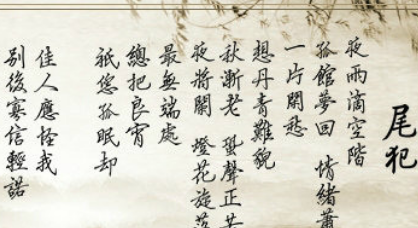 尾犯
夜雨滴空階
孤館夢回 情緒蕭
一片閒愁
想丹青難貌
秋漸老 蛩聲正苦
夜將闌 燈花旋落
最無端處
總把良宵
祇恁孤眠却
佳人應怪我
別後寡信輕諾